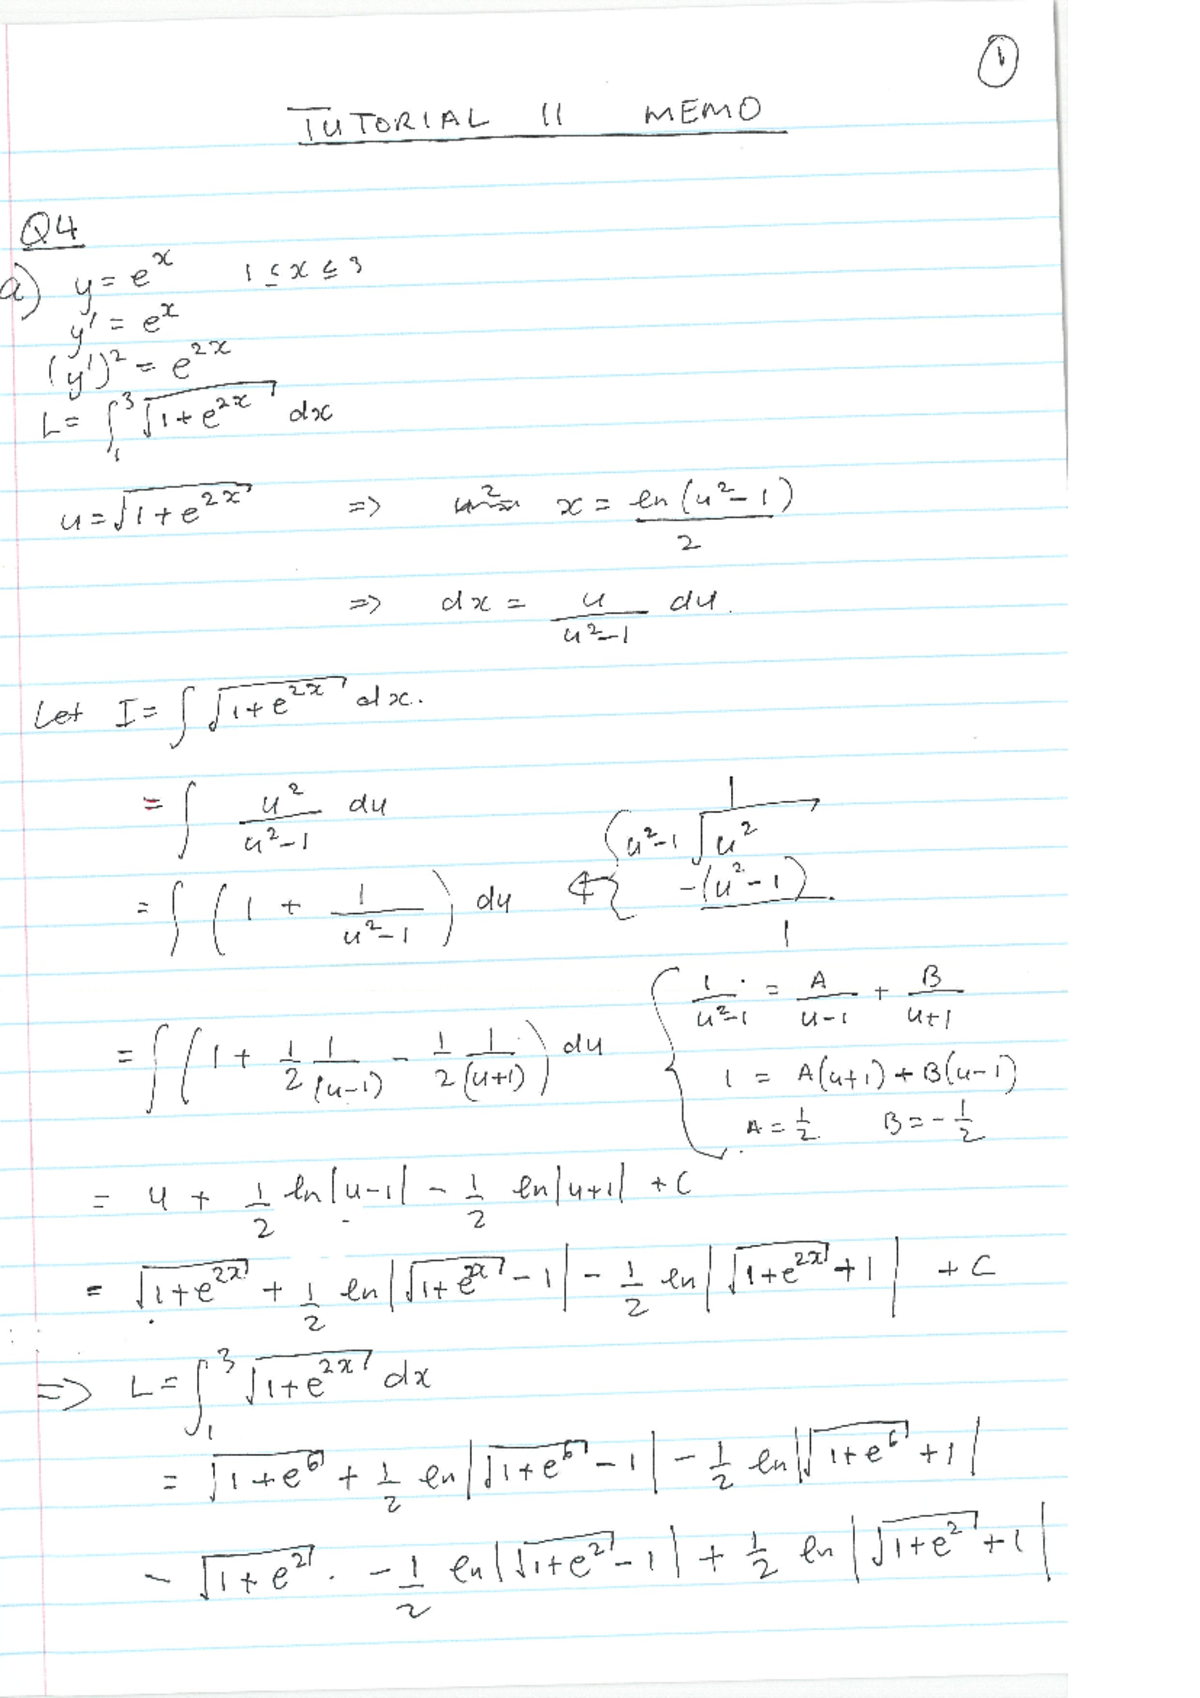 1
TUTORIAL 11 MEMO
Q4
a) y = e^x 1 ≤ x ≤ 3
y' = e^x
(y')^2 = e^{2x}
L = ∫_1^3 √(1+e^{2x}) dx
u = √(1+e^{2x}) => x = ln(u^2-1)/2
=> dx = u/(u^2-1) du.
Let I = ∫ √(1+e^{2x}) dx.
= ∫ u^2/(u^2-1) du
1
u^2-1 √ u^2
= ∫ (1 + 1/(u^2-1)) du
-(u^2-1)
1
1/(u^2-1) = A/(u-1) + B/(u+1)
= ∫ (1 + 1/2 1/(u-1) - 1/2 1/(u+1)) du
1 = A(u+1) + B(u-1)
A = 1/2 B = -1/2
= u + 1/2 ln|u-1| - 1/2 ln|u+1| + C
= √(1+e^{2x}) + 1/2 ln|√(1+e^{2x}) - 1| - 1/2 ln|√(1+e^{2x}) + 1| + C
=> L = ∫_1^3 √(1+e^{2x}) dx
= √(1+e^6) + 1/2 ln|√(1+e^6) - 1| - 1/2 ln|√(1+e^6) + 1|
- √(1+e^2) . - 1/2 ln|√(1+e^2) - 1| + 1/2 ln|√(1+e^2) + 1|